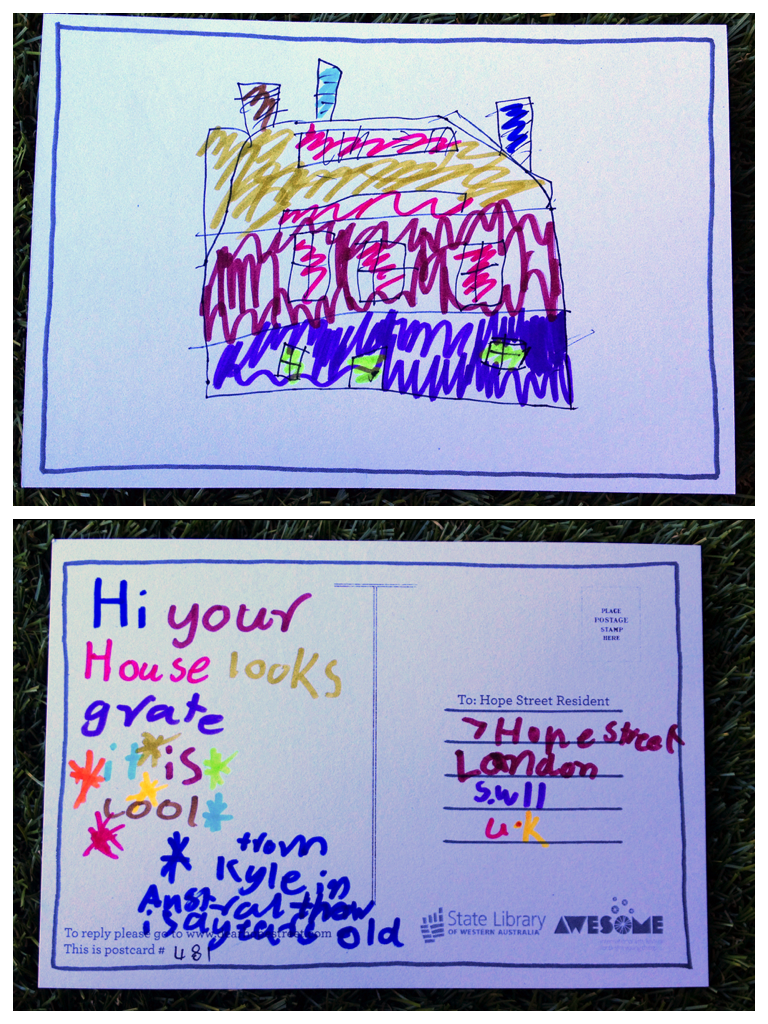 Hi your
House looks
grate
it is
cool
from
Kyle in
is a years old
To reply please go to www.dearhopestreet.com
This is postcard # 48
PLACE
POSTAGE
STAMP
HERE
To: Hope Street Resident
7 Hope street
London
S.W11
U.K
State Library
OF WESTERN AUSTRALIA
AWESOME